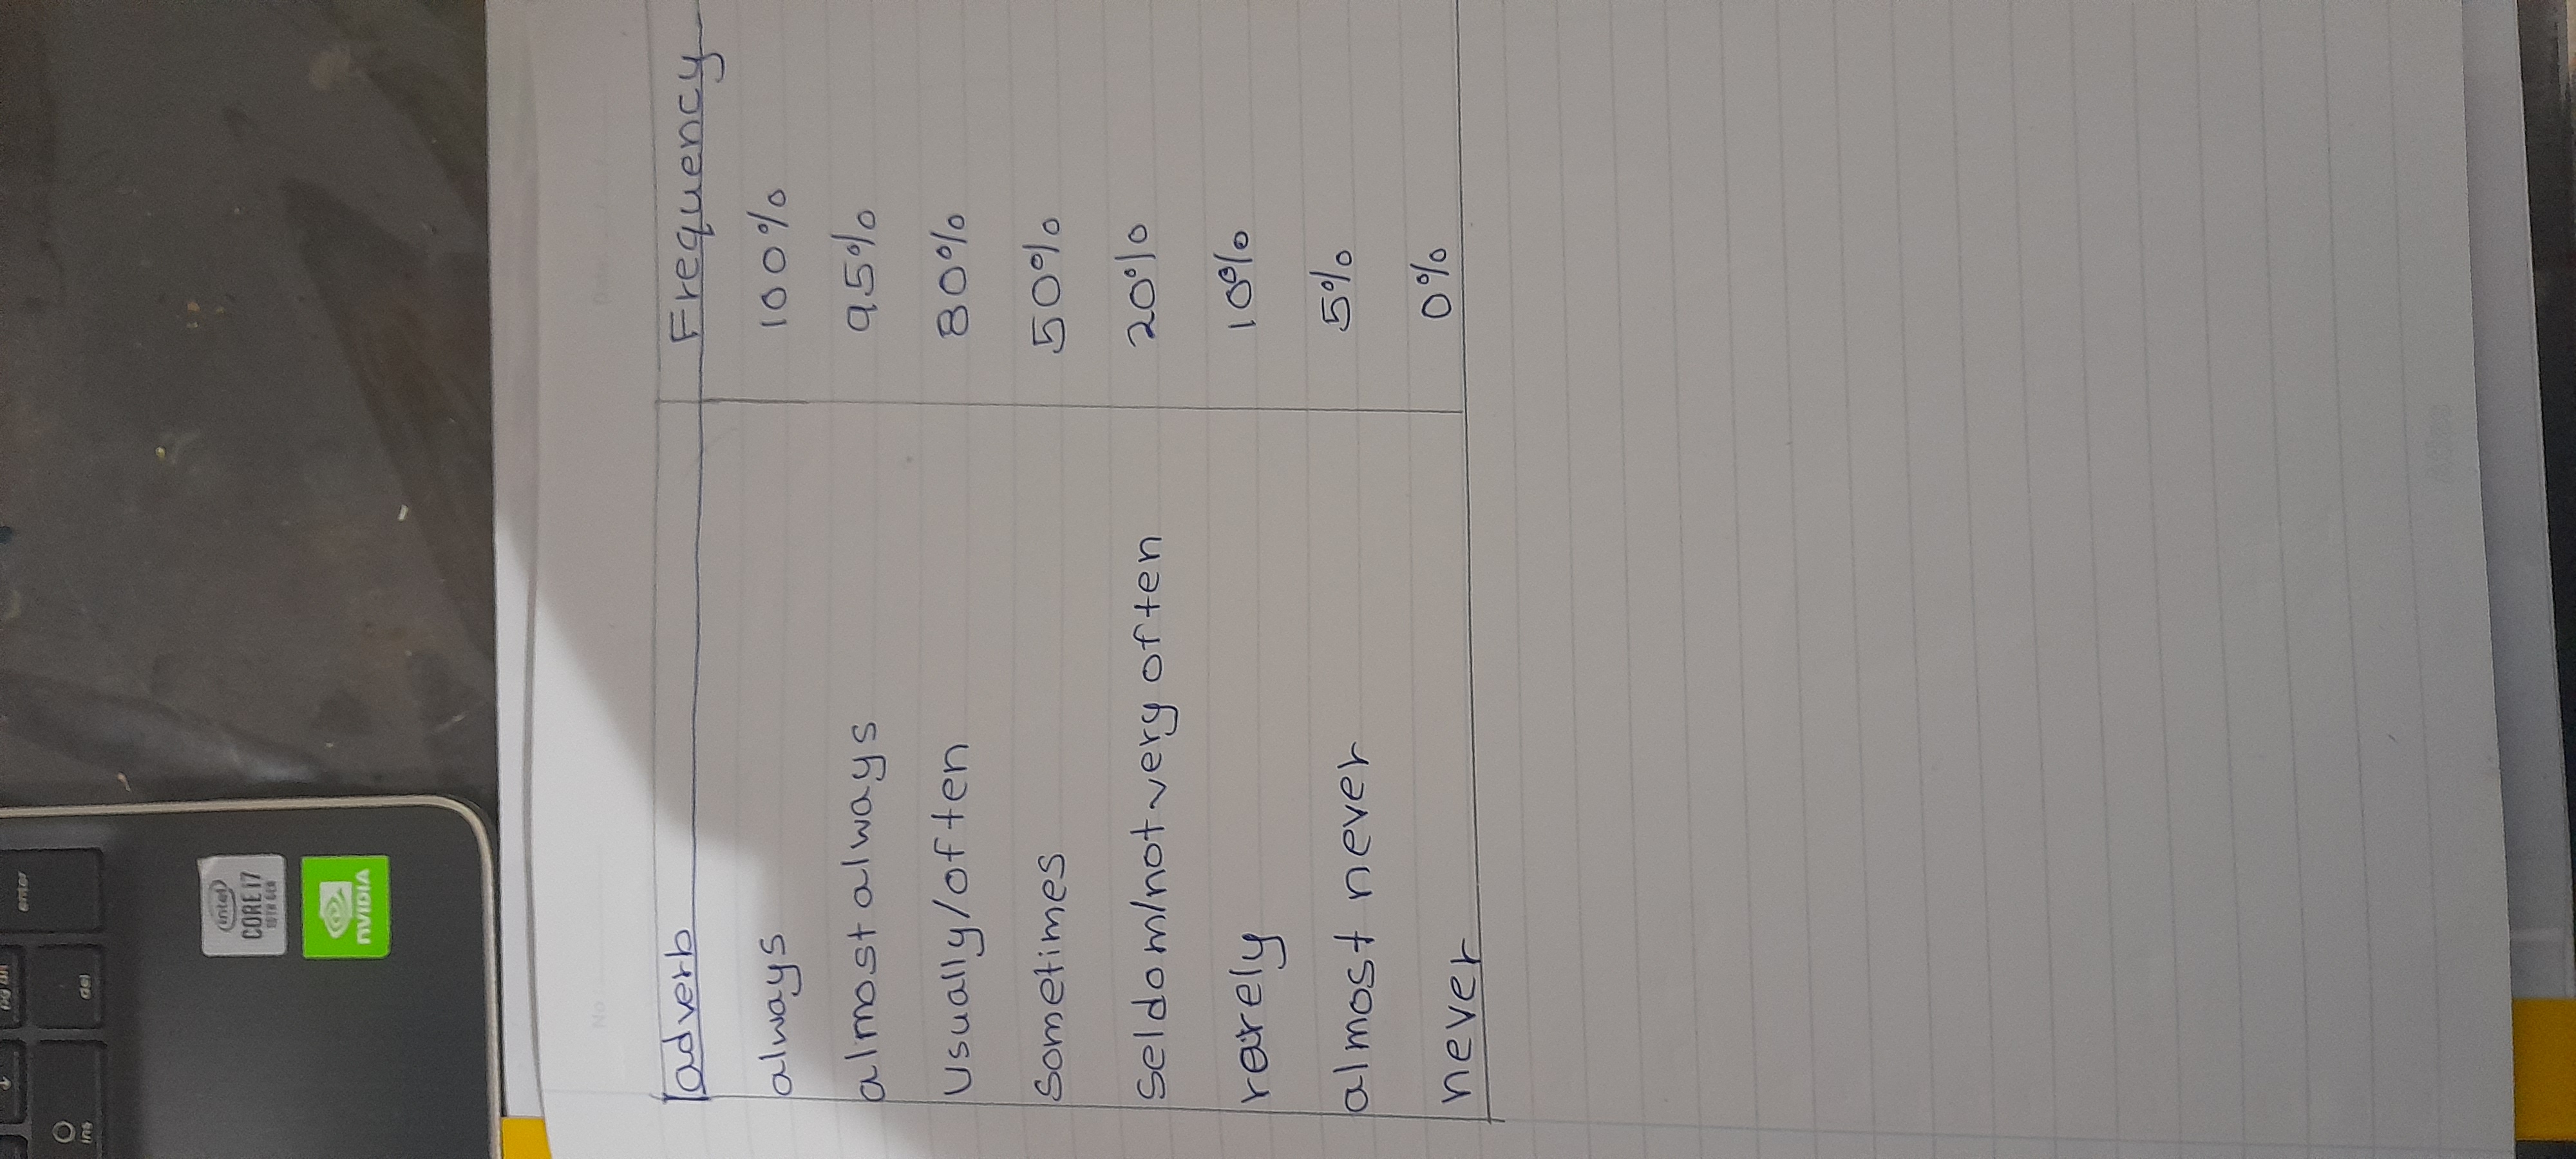 adverb Frequency
always 100%
almost always 95%
Usually/often 80%
Sometimes 50%
Seldom/not very often 20%
rarely 10%
almost never 5%
never 0%
enter
del
ins
intel
CORE i7
10TH GEN
NVIDIA
No
Date